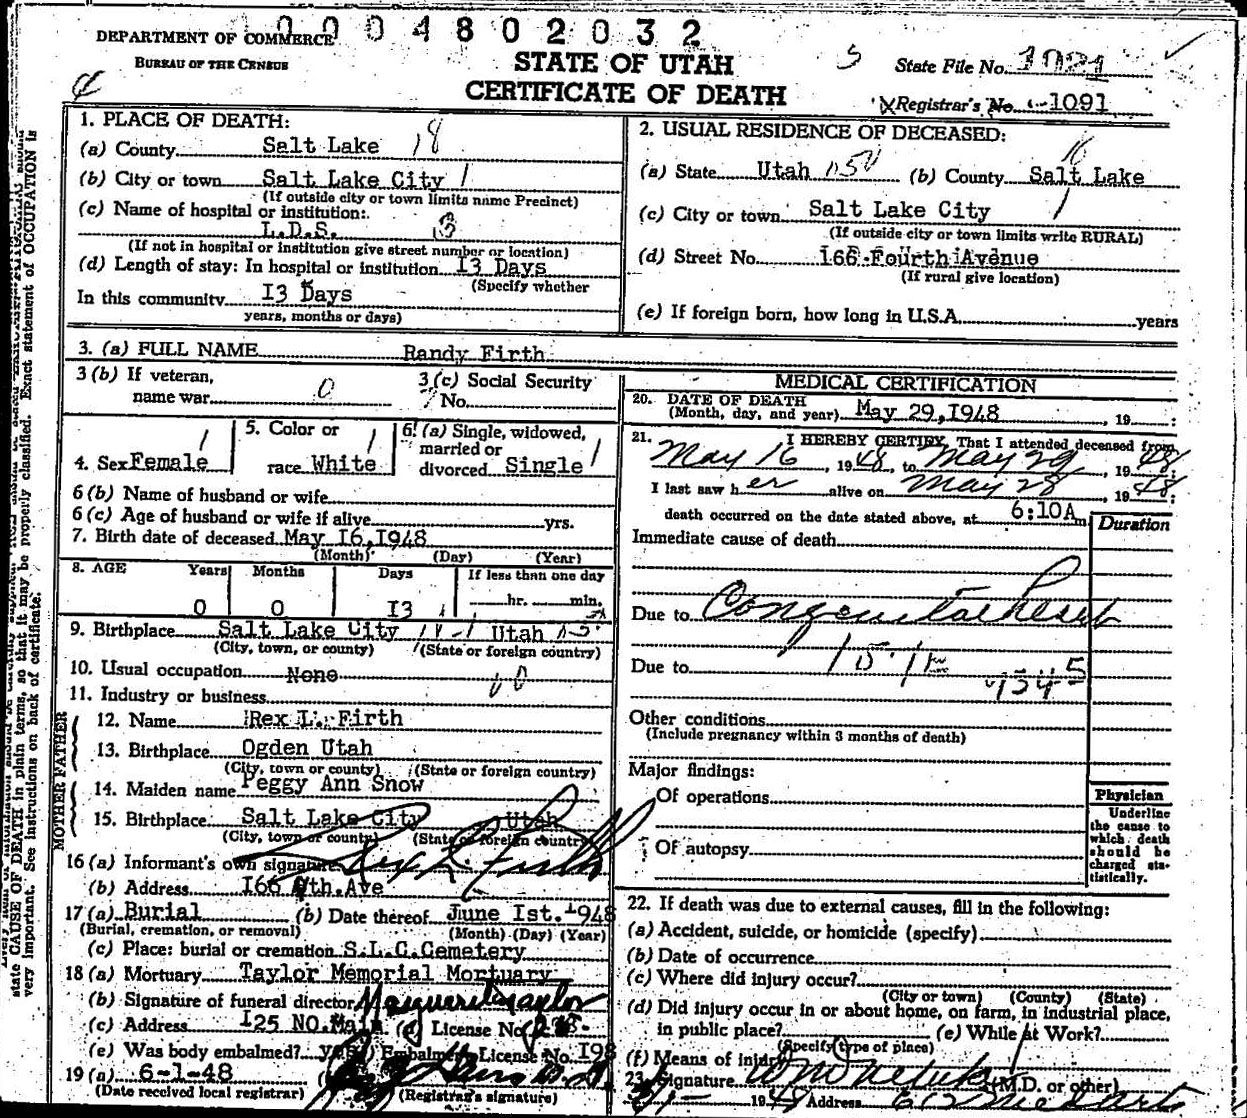 0 0 0 4 8 0 2 0 3 2
DEPARTMENT OF COMMERCE
BUREAU OF THE CENSUS
STATE OF UTAH
CERTIFICATE OF DEATH
State File No.
Registrar's No. 1091
1. PLACE OF DEATH:
(a) County Salt Lake 18
(b) City or town Salt Lake City 1
(If outside city or town limits name Precinct)
(c) Name of hospital or institution:
L.D.S.
(If not in hospital or institution give street number or location)
(d) Length of stay: In hospital or institution 13 Days
(Specify whether
In this community 13 Days
years, months or days)
2. USUAL RESIDENCE OF DECEASED:
(a) State Utah (b) County Salt Lake
(c) City or town Salt Lake City 1
(If outside city or town limits write RURAL)
(d) Street No. 166 Fourth Avenue
(If rural give location)
(e) If foreign born, how long in U.S.A. years
3. (a) FULL NAME Randy Firth
3 (b) If veteran, name war 0
3 (c) Social Security No.
4. Sex Female 1
5. Color or race White 1
6. (a) Single, widowed, married or divorced Single 1
6 (b) Name of husband or wife
6 (c) Age of husband or wife if alive yrs.
7. Birth date of deceased May 16, 1948
(Month) (Day) (Year)
8. AGE Years Months Days If less than one day
0 0 13 hr. min.
9. Birthplace Salt Lake City Utah
(City, town, or county) (State or foreign country)
10. Usual occupation None
11. Industry or business
FATHER
12. Name Rex L. Firth
13. Birthplace Ogden Utah
(City, town or county) (State or foreign country)
MOTHER
14. Maiden name Peggy Ann Snow
15. Birthplace Salt Lake City Utah
(City, town or county) (State or foreign country)
16 (a) Informant's own signature Rex L. Firth
(b) Address 166 4th. Ave
17 (a) Burial (b) Date thereof June 1st. 1948
(Burial, cremation, or removal) (Month) (Day) (Year)
(c) Place: burial or cremation S.L.C. Cemetery
18 (a) Mortuary Taylor Memorial Mortuary
(b) Signature of funeral director
(c) Address 125 NO. Main (d) License No.
(e) Was body embalmed? yes (f) Embalmer License No. 198
19 (a) 6-1-48
(Date received local registrar) (Registrar's signature)
MEDICAL CERTIFICATION
20. DATE OF DEATH
(Month, day, and year) May 29, 1948, 19 :
21. I HEREBY CERTIFY, That I attended deceased from
May 16, 1948, to May 29, 1948;
I last saw her alive on May 28, 1948;
death occurred on the date stated above, at 6:10A m.
Duration
Immediate cause of death
Due to Congenital
Due to
Other conditions
(Include pregnancy within 3 months of death)
Major findings:
Of operations
Of autopsy
Physician
Underline
the cause to
which death
should be
charged sta-
tistically.
22. If death was due to external causes, fill in the following:
(a) Accident, suicide, or homicide (specify)
(b) Date of occurrence
(c) Where did injury occur?
(City or town) (County) (State)
(d) Did injury occur in or about home, on farm, in industrial place,
in public place? (e) While at Work?
(Specify type of place)
(f) Means of injury
23. Signature (M.D. or other)
19 Address
state CAUSE OF DEATH in plain terms, so that it may be properly classified. Exact statement of OCCUPATION is
very important. See instructions on back of certificate.